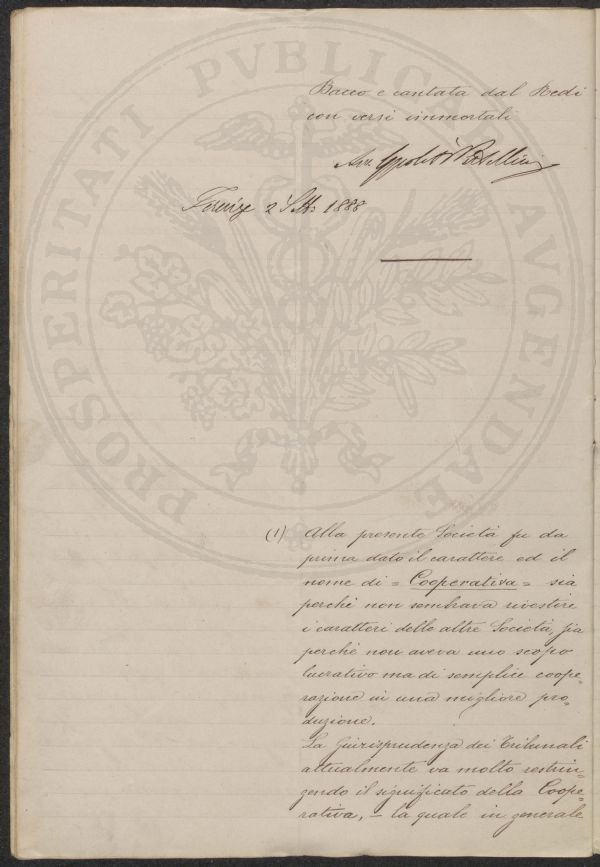 PROSPERITATI PVBLICAE AVGENDAE
Bacco e cantata dal Redi
con versi immortali
Avv.
Firenze 2 Sett. 1888
(1) Alla presente Società fu da
prima dato il carattere ed il
nome di = Cooperativa = sia
perchè non sembrava rivestire
i caratteri delle altre Società, sia
perchè non aveva uno scopo
lucrativo ma di semplice coope-
razione in una migliore pro-
duzione.
La Giurisprudenza dei Tribunali
attualmente va molto restrin-
gendo il significato della Coope-
rativa, – la quale in generale